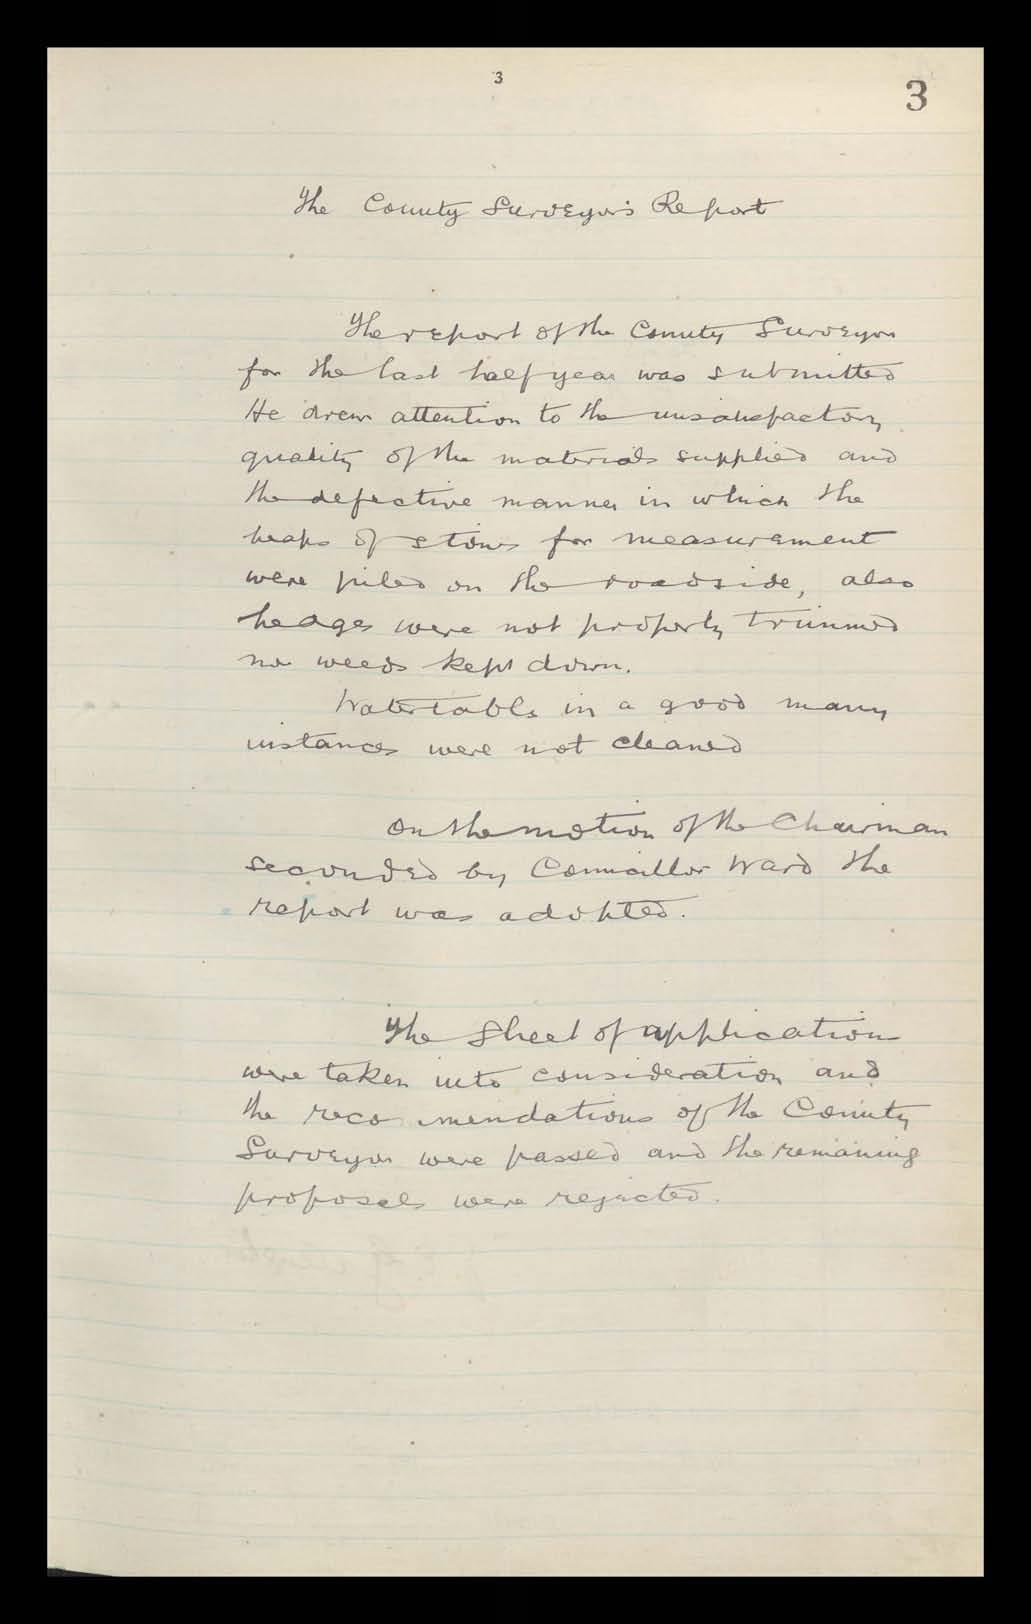 3
3
The County Surveyor's Report
The report of the County Surveyor
for the last half year was submitted
He drew attention to the unsatisfactory
quality of the materials supplied and
the defective manner in which the
heaps of stones for measurement
were piled on the roadside, also
hedges were not properly trimmed
nor weeds kept down.
Watertables in a good many
instances were not cleaned
On the motion of the Chairman
seconded by Councillor Ward the
report was adopted.
The Sheet of application
were taken into consideration and
the recommendations of the County
Surveyor were passed and the remaining
proposals were rejected.